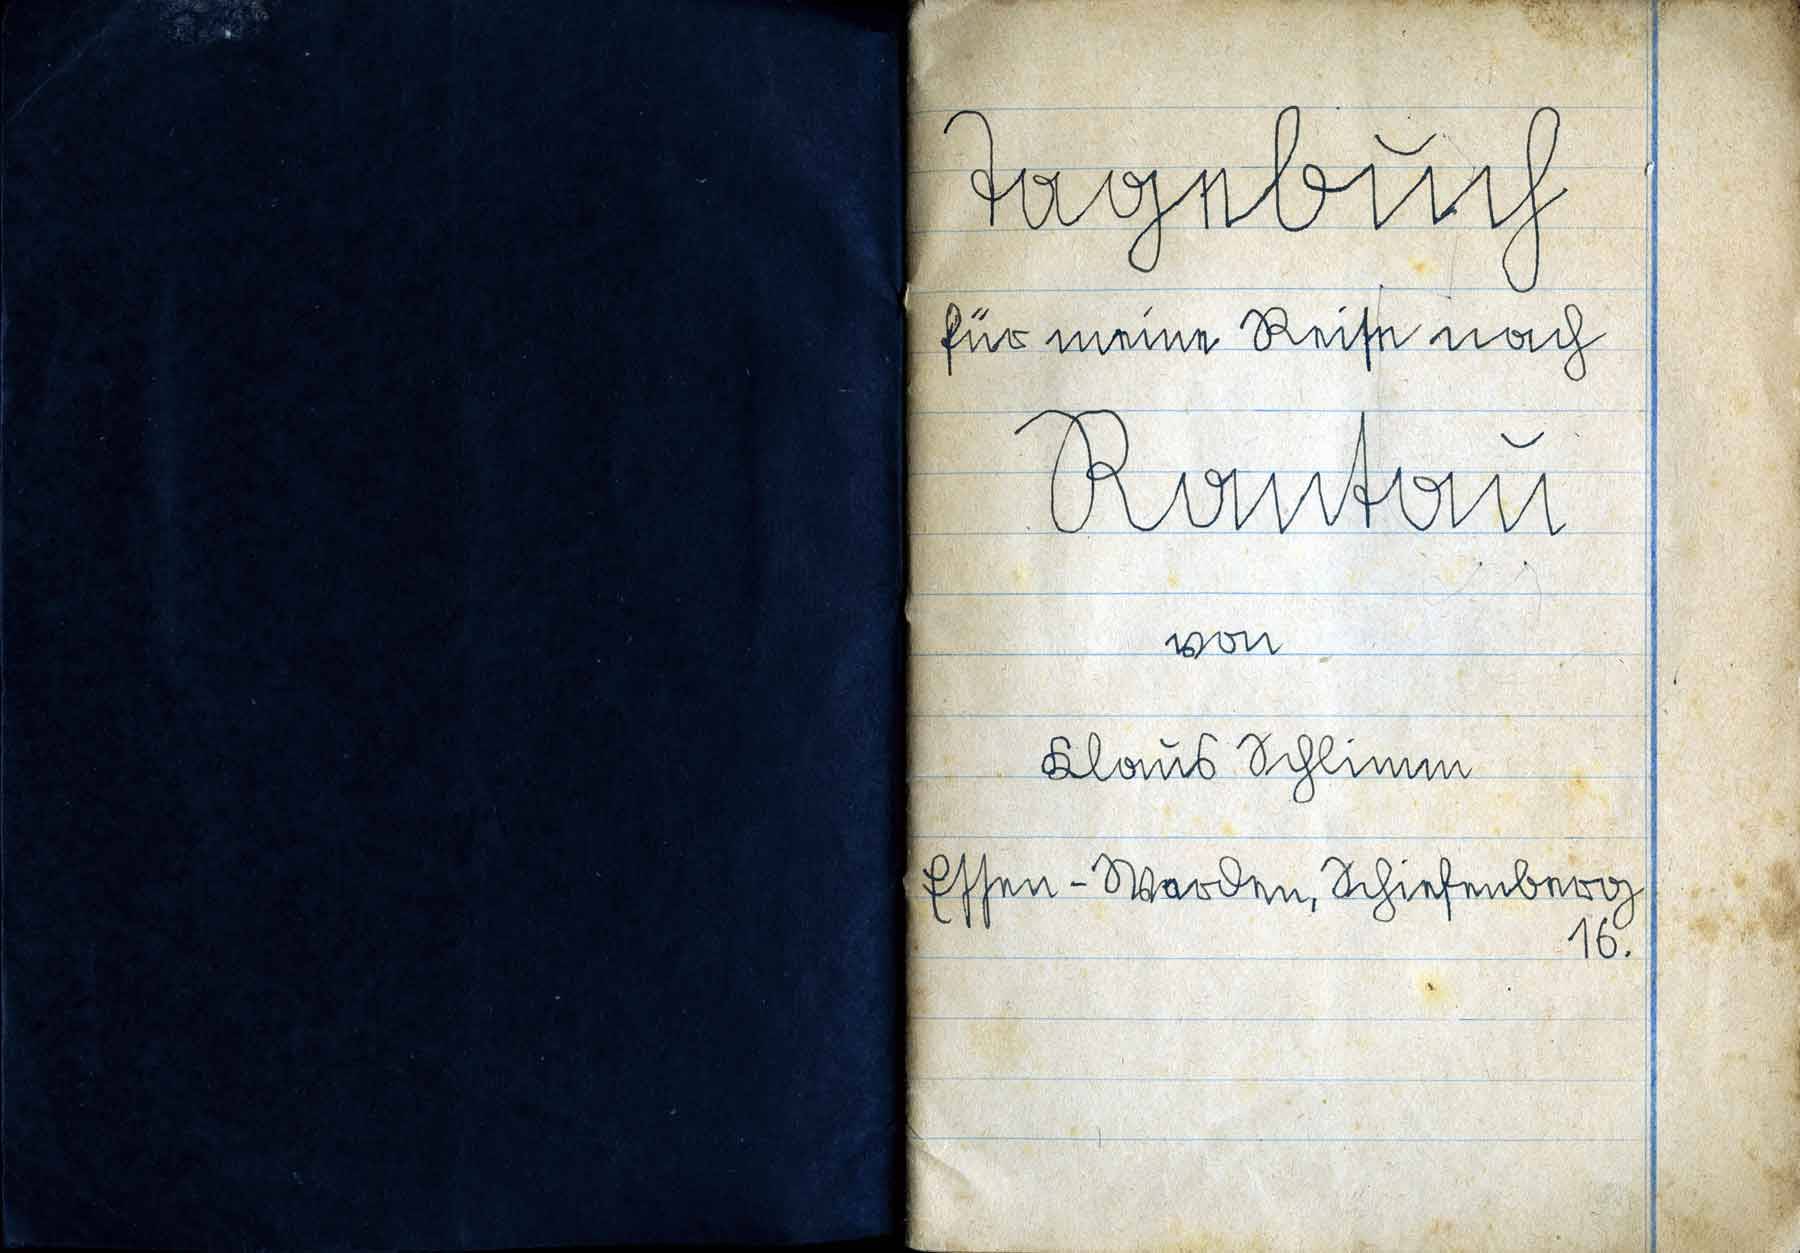 Tagebuch
für meine Reise nach
Rantau
von
Klaus Schlimm
Essen-Werden, Schiefenberg
16.